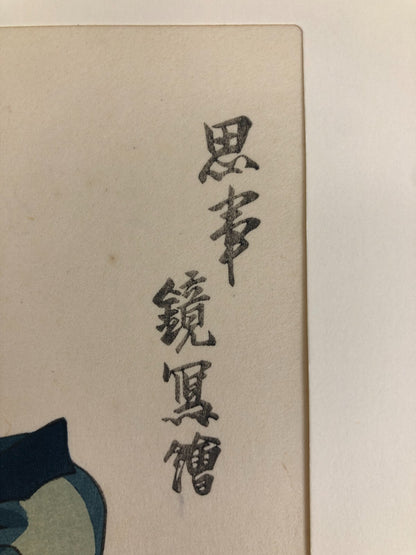 思事
鏡寫繪